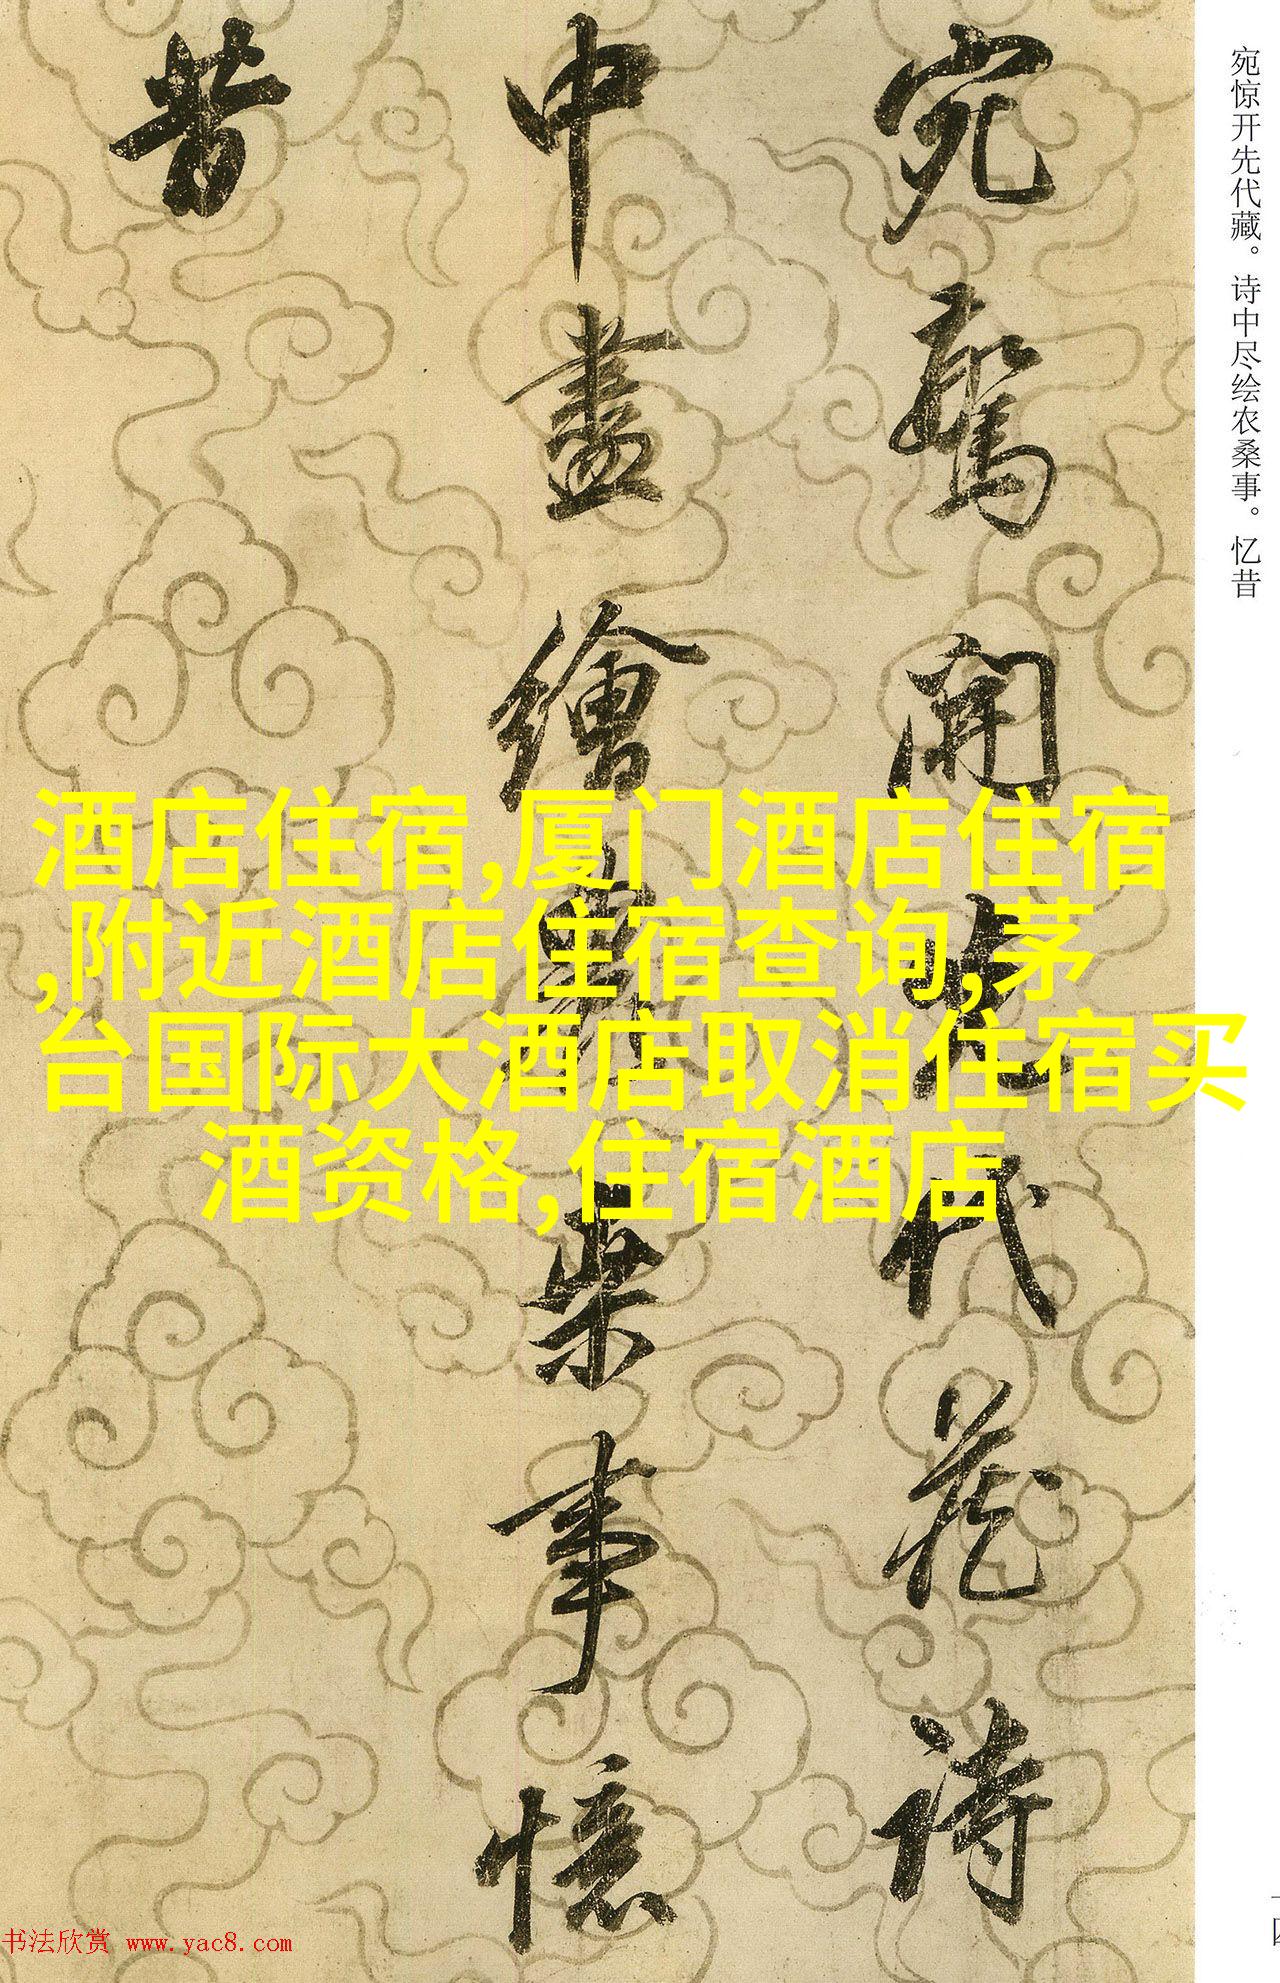 宛驚開先代藏詩
中盡繪農桒事憶
昔
宛惊开先代藏。诗中尽绘农桑事。忆昔
酒店住宿,厦门酒店住宿
,附近酒店住宿查询,茅
台国际大酒店取消住宿买
酒资格,住宿酒店
书法欣赏 www.yac8.com